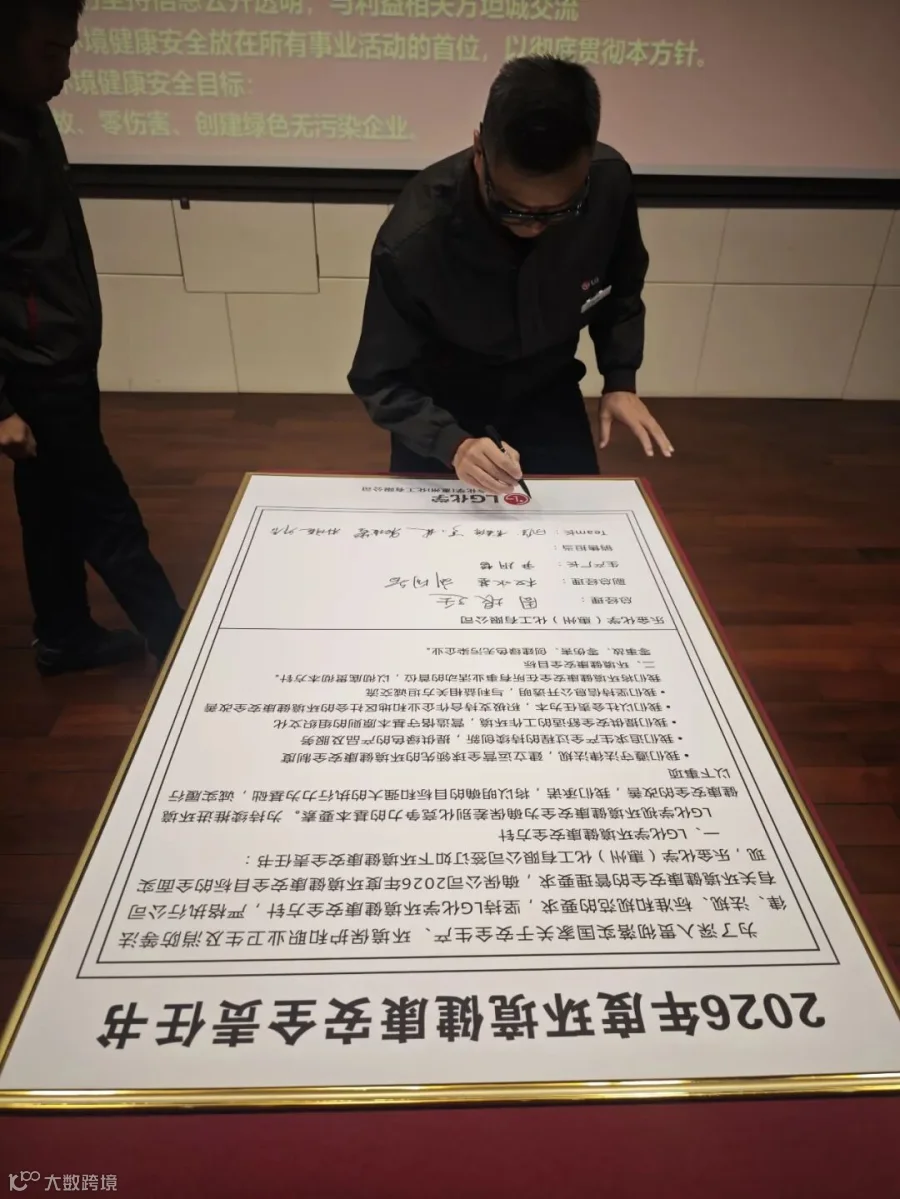 坚持信息公开透明，与利益相关方坦诚交流
环境健康安全放在所有事业活动的首位，以彻底贯彻本方针。
环境健康安全目标：
故、零伤害、创建绿色无污染企业。
LG
2026年度环境健康安全责任书
为了深入贯彻落实国家关于安全生产、环境保护和职业卫生及消防等法
律、法规、标准和规范的要求，坚持LG化学环境健康安全方针，严格执行公司
有关环境健康安全的管理要求，确保公司2026年度环境健康安全目标的全面实
现，乐金化学（惠州）化工有限公司签订如下环境健康安全责任书：
一、LG化学环境健康安全方针
LG化学视环境健康安全为确保差别化竞争力的基本要素。为持续推进环境
健康安全的改善，我们承诺，将以明确的目标和强大的执行力为基础，诚实履行
以下事项
• 我们遵守法律法规，建立运营全球领先的环境健康安全制度
• 我们追求生产全过程的持续创新，提供绿色的产品及服务
• 我们提供安全舒适的工作环境，营造恪守基本原则的组织文化
• 我们以社会责任为本，积极支持合作企业和地区社会的环境健康安全改善
• 我们坚持信息公开透明，与利益相关方坦诚交流
我们将环境健康安全放在所有事业活动的首位，以彻底贯彻本方针。
二、环境健康安全目标
零事故、零伤害、创建绿色无污染企业。
乐金化学（惠州）化工有限公司
总经理：
副总经理：
生产厂长：
销售担当：
Team长：
LG化学
乐金化学(惠州)化工有限公司
大数跨境